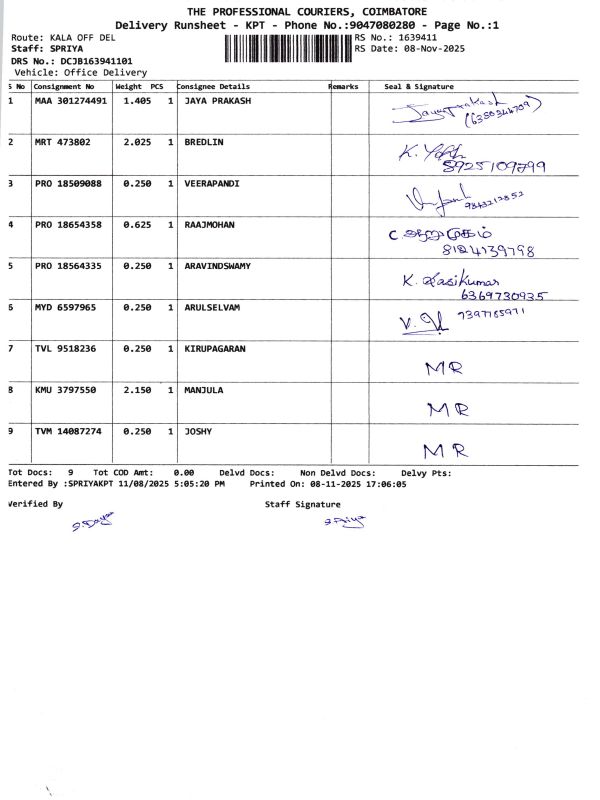 THE PROFESSIONAL COURIERS, COIMBATORE
Delivery Runsheet - KPT - Phone No.:9047080280 - Page No.:1
Route: KALA OFF DEL RS No.: 1639411
Staff: SPRIYA RS Date: 08-Nov-2025
DRS No.: DCJB163941101
Vehicle: Office Delivery
S No Consignment No Weight PCS Consignee Details Remarks Seal & Signature
1 MAA 301274491 1.405 1 JAYA PRAKASH Jayaprakash
2 MRT 473802 2.025 1 BREDLIN K.
8925109799
3 PRO 18509088 0.250 1 VEERAPANDI
9843212852
4 PRO 18654358 0.625 1 RAAJMOHAN C. ஆறுமுகம்
8124139798
5 PRO 18564335 0.250 1 ARAVINDSWAMY K. Sasikumar
6369730935
6 MYD 6597965 0.250 1 ARULSELVAM V. 7397765971
7 TVL 9518236 0.250 1 KIRUPAGARAN MR
8 KMU 3797550 2.150 1 MANJULA MR
9 TVM 14087274 0.250 1 JOSHY MR
Tot Docs: 9 Tot COD Amt: 0.00 Delvd Docs: Non Delvd Docs: Delvy Pts:
Entered By :SPRIYAKPT 11/08/2025 5:05:20 PM Printed On: 08-11-2025 17:06:05
Verified By Staff Signature
S.Priya